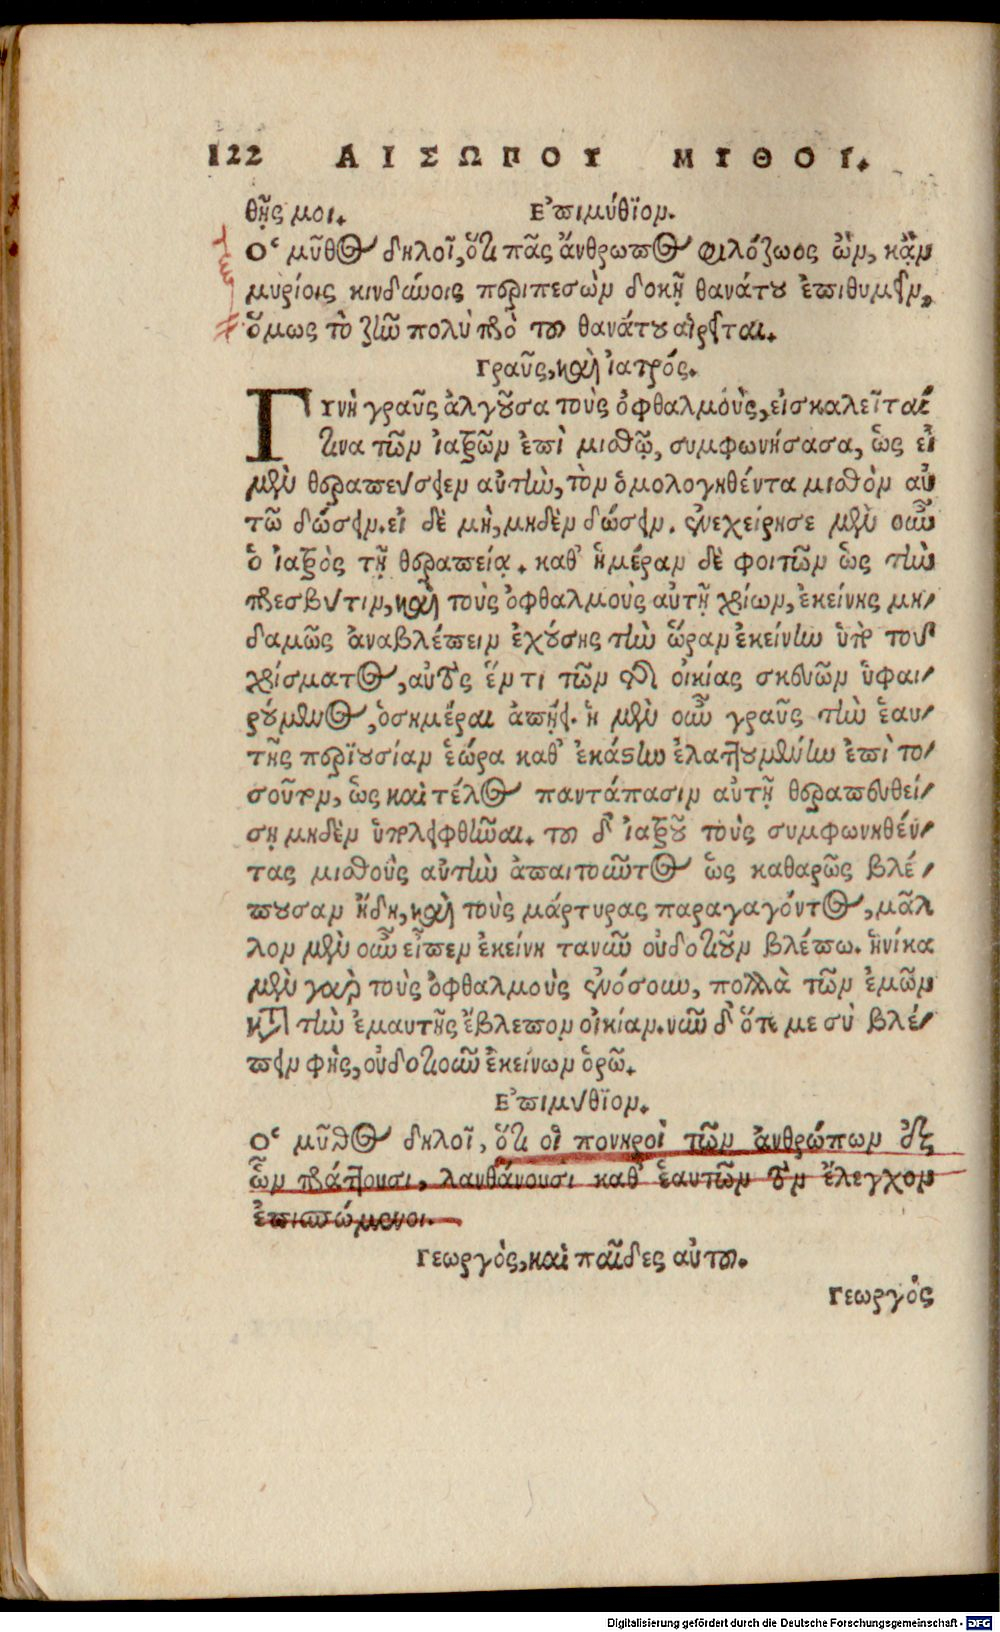 122 ΑΙΣΩΠΟΥ ΜΥΘΟΙ.
θῇς μοι. Ἐπιμύθιον.
Ὁ μῦθος δηλοῖ, ὅτι πᾶς ἄνθρωπος φιλόζωος ὢν, κἂν
μυρίοις κινδύνοις περιπεσὼν δοκῇ θανάτου ἐπιθυμεῖν,
ὅμως τὸ ζῆν πολὺ πρὸ τοῦ θανάτου αἱρεῖται.
Γραῦς, καὶ ἰατρός.
Γυνὴ γραῦς ἀλγοῦσα τοὺς ὀφθαλμοὺς, εἰσκαλεῖταί
τινα τῶν ἰατρῶν ἐπὶ μισθῷ, συμφωνήσασα, ὡς εἰ
μὲν θεραπεύσειεν αὐτὴν, τὸν ὁμολογηθέντα μισθὸν αὐ
τῶ δώσειν. εἰ δὲ μὴ, μηδὲν δώσειν. ἐνεχείρησε μὲν οὖν
ὁ ἰατρὸς τῇ θεραπείᾳ. καθ' ἡμέραν δὲ φοιτῶν ὡς τὴν
πρεσβύτιν, καὶ τοὺς ὀφθαλμοὺς αὐτῇ χρίων, ἐκείνης μη/
δαμῶς ἀναβλέπειν ἐχούσης τὴν ὥραν ἐκείνην ὑπὸ τοῦ
χρίσματος, αὐτὸς ἕν τι τῶν τῆς οἰκίας σκευῶν ὑφαι/
ρούμενος, ὁσημέραι ἀπῄει. ἡ μὲν οὖν γραῦς τὴν ἑαυ/
τῆς περϊουσίαν ἑώρα καθ' ἑκάστην ἐλαττουμένην ἐπὶ το/
σοῦτον, ὡς καὶ τέλος παντάπασιν αὐτῇ θεραπευθεί/
σῃ μηδὲν ὑπολειφθῆναι. τοῦ δ' ἰατροῦ τοὺς συμφωνηθέν/
τας μισθοὺς αὐτὴν ἀπαιτοῦντος ὡς καθαρῶς βλέ/
πουσαν ἤδη, καὶ τοὺς μάρτυρας παραγαγόντος, μᾶλ
λον μὲν οὖν εἶπεν ἐκείνη τανῦν οὐδοτιοῦν βλέπω. ἡνίκα
μὲν γὰρ τοὺς ὀφθαλμοὺς ἐνόσουν, πολλὰ τῶν ἐμῶν
κατὰ τὴν ἐμαυτῆς ἔβλεπον οἰκίαν. νῦν δ' ὅτε με σὺ βλέ/
πειν φῂς, οὐδοτιοῦν ἐκείνων ὁρῶ.
Ἐπιμύθϊον.
Ὁ μῦθος δηλοῖ, ὅτι οἱ πονηροὶ τῶν ἀνθρώπων ἐξ
ὧν πράττουσι, λανθάνουσι καθ' ἑαυτῶν τὸν ἔλεγχον
ἐπισπώμενοι.
Γεωργὸς, καὶ παῖδες αὐτοῦ.
Γεωργὸς
Digitalisierung gefördert durch die Deutsche Forschungsgemeinschaft - DFG